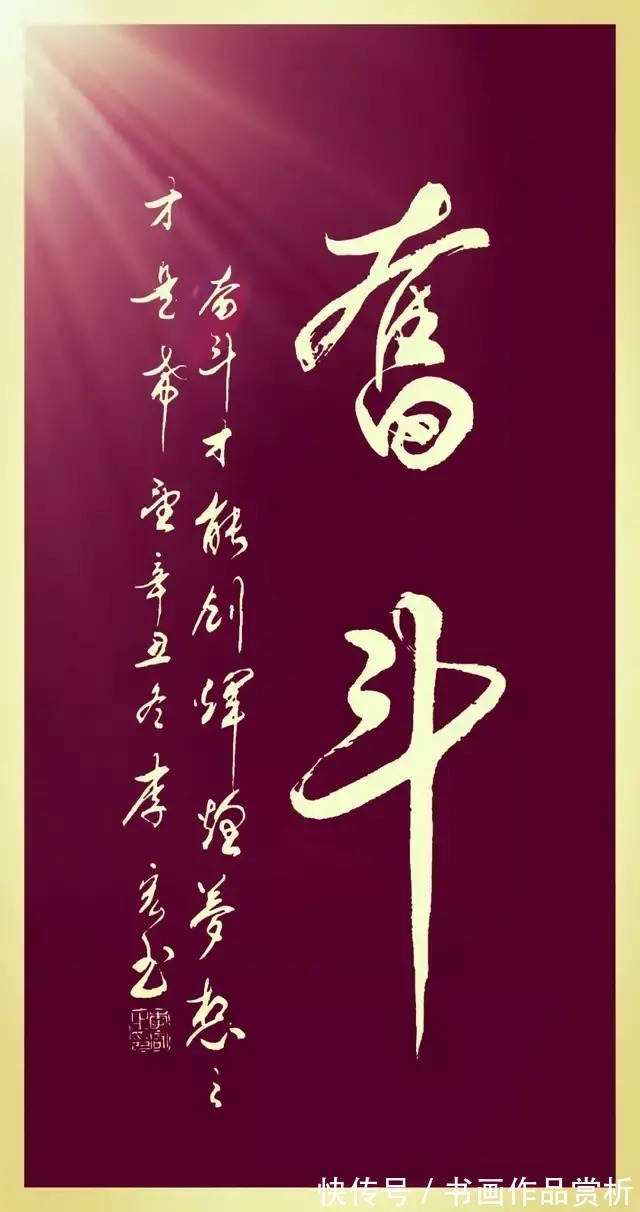 奮斗
奋斗才能创輝煌夢想之
才是希望辛丑冬李宏玉
快传号 / 书画作品赏析